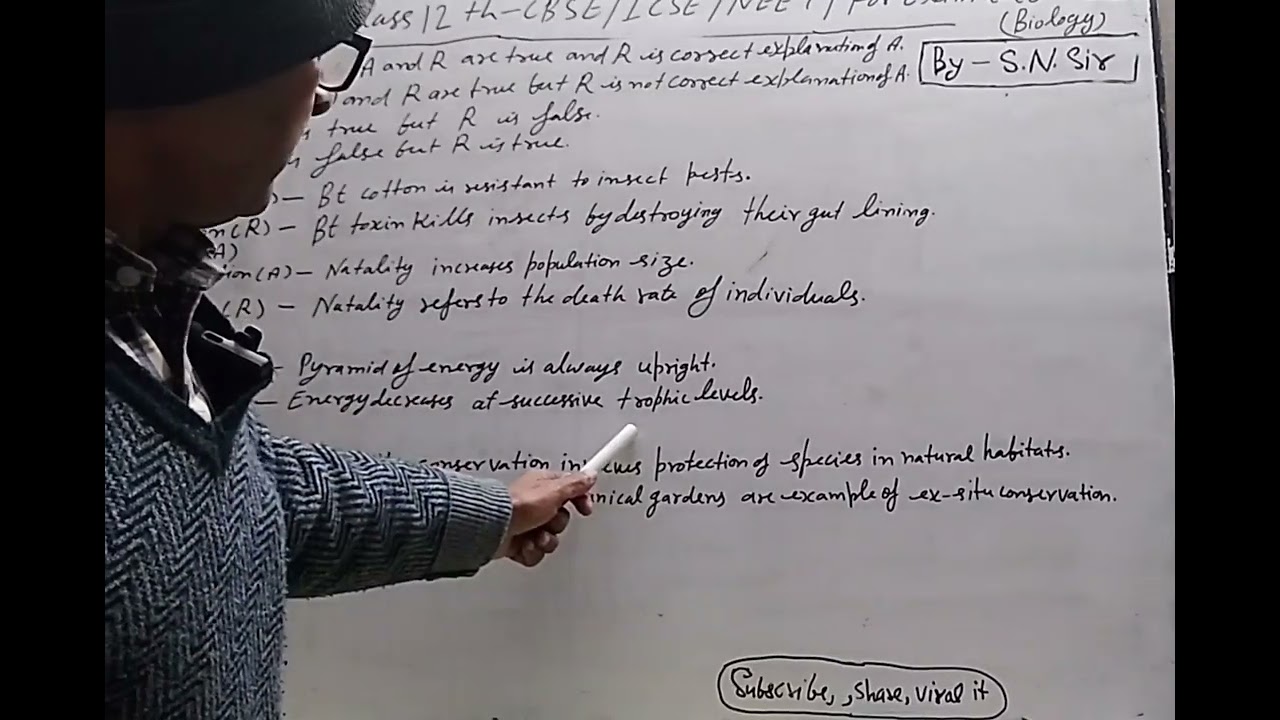 Class 12 th-CBSE/ICSE/NEET/ For
(Biology)
A and R are true and R is correct explanation of A.
By - S.N. Sir
and R are true but R is not correct explanation of A.
true but R is false.
false but R is true.
) - Bt cotton is resistant to insect pests.
(R) - Bt toxin kills insects by destroying their gut lining.
(A)
(A) - Natality increases population size.
(R) - Natality refers to the death rate of individuals.
- Pyramid of energy is always upright.
- Energy decreases at successive trophic levels.
conservation protection of species in natural habitats.
gardens are example of ex-situ conservation.
Subscribe, , share, viral it